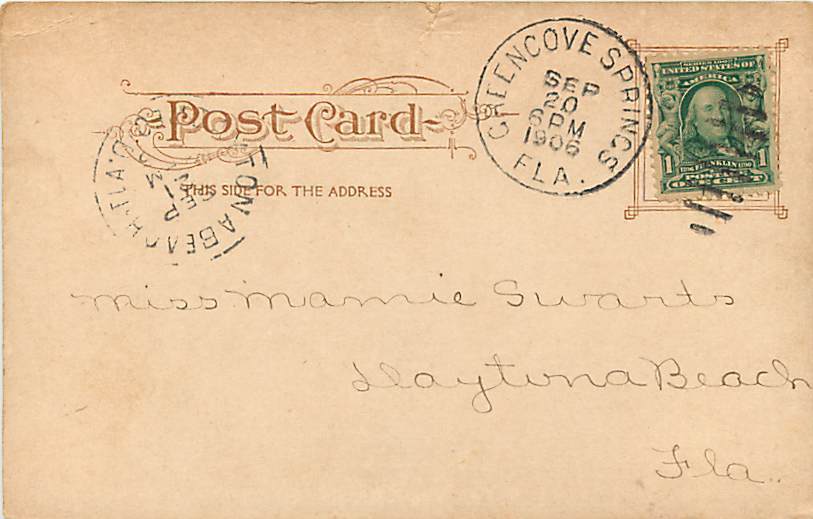 Post Card
THIS SIDE FOR THE ADDRESS
GREEN COVE SPRINGS
SEP
20
6 PM
1906
FLA.
SERIES 1902
UNITED STATES OF
AMERICA
1 FRANKLIN 1
POSTAGE
ONE CENT
TONA BEACH, FLA.
SEP
M
Miss Mamie Swarts
Daytona Beach
Fla.